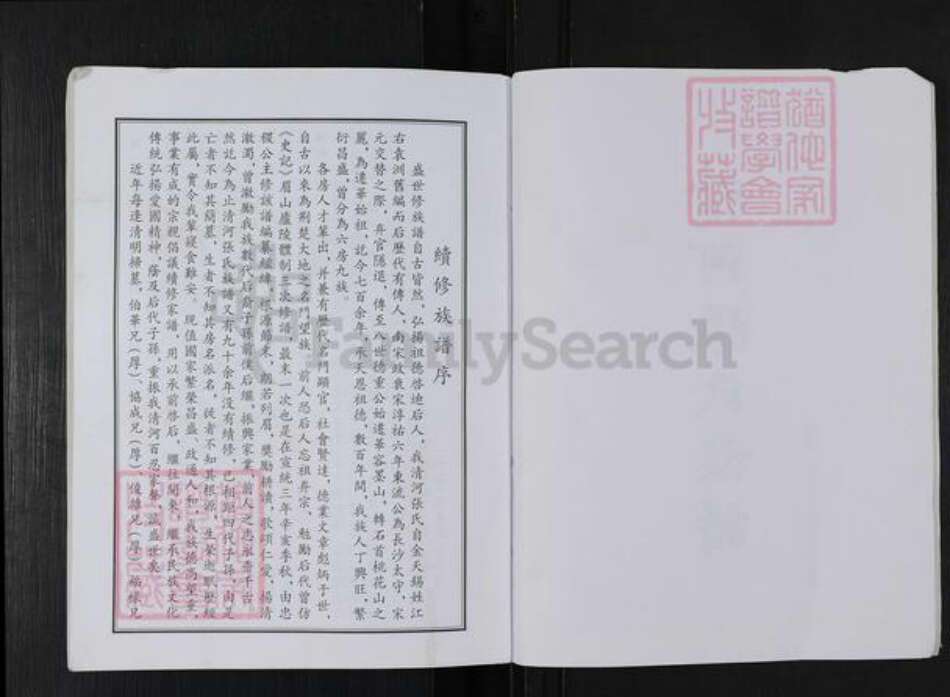 猶他家
譜學會
收藏
續修族譜序
盛世修族譜自古皆然，弘揚祖德啓迪后人，我清河張氏自金天賜姓江
右袁洲舊編而后歷代有傳人，南宋政衰宋淳祐六年東流公為長沙太守，宋
元交替之際，弃官隱退，傳至八世德重公始遷華容墨山，轉石首桃花山之
麓，為遷華始祖，訖今七百余年，承天恩祖德，數百年間，我族人丁興旺，繁
衍昌盛，曾分為六房九族。
各房人才輩出，并兼有歷代名門顯官，社會賢達，德業文章彪炳于世，
自古以來為荆楚大地之名門望族，前人恐后人忘祖弃宗，勉勵后代曾仿
《史記》眉山廬陵體制三次修譜，最末一次也是在宣統三年辛亥季秋，由忠
稷公主修該譜編纂經緯，根源始末，朗若列眉，獎勵耕讀，歌頌仁愛，揚清
激濁，曾激勵我族數代后裔子孫前僕后繼，振興家業，前人之志永垂千古
然訖今為止清河張氏族譜又有九十余年没有續修，已相距四代子孫，由是
亡者不知其葬墓，生者不知其房名派名，徙者不知其根源，生榮逝歿歷經
此屬，實令我輩寢食難安。現值國家繁榮昌盛、政通人和，我族德高望重，
事業有成的宗親倡議續修家譜，用以承前啓后，繼往開來，繼承民族文化
傳統弘揚愛國精神，蔭及后代子孫，重振我清河百忍家聲，誠盛世美
近年每逢清明掃墓，伯華兄（厚）、協成兄（厚）、俊雄兄（厚）、
FamilySearch